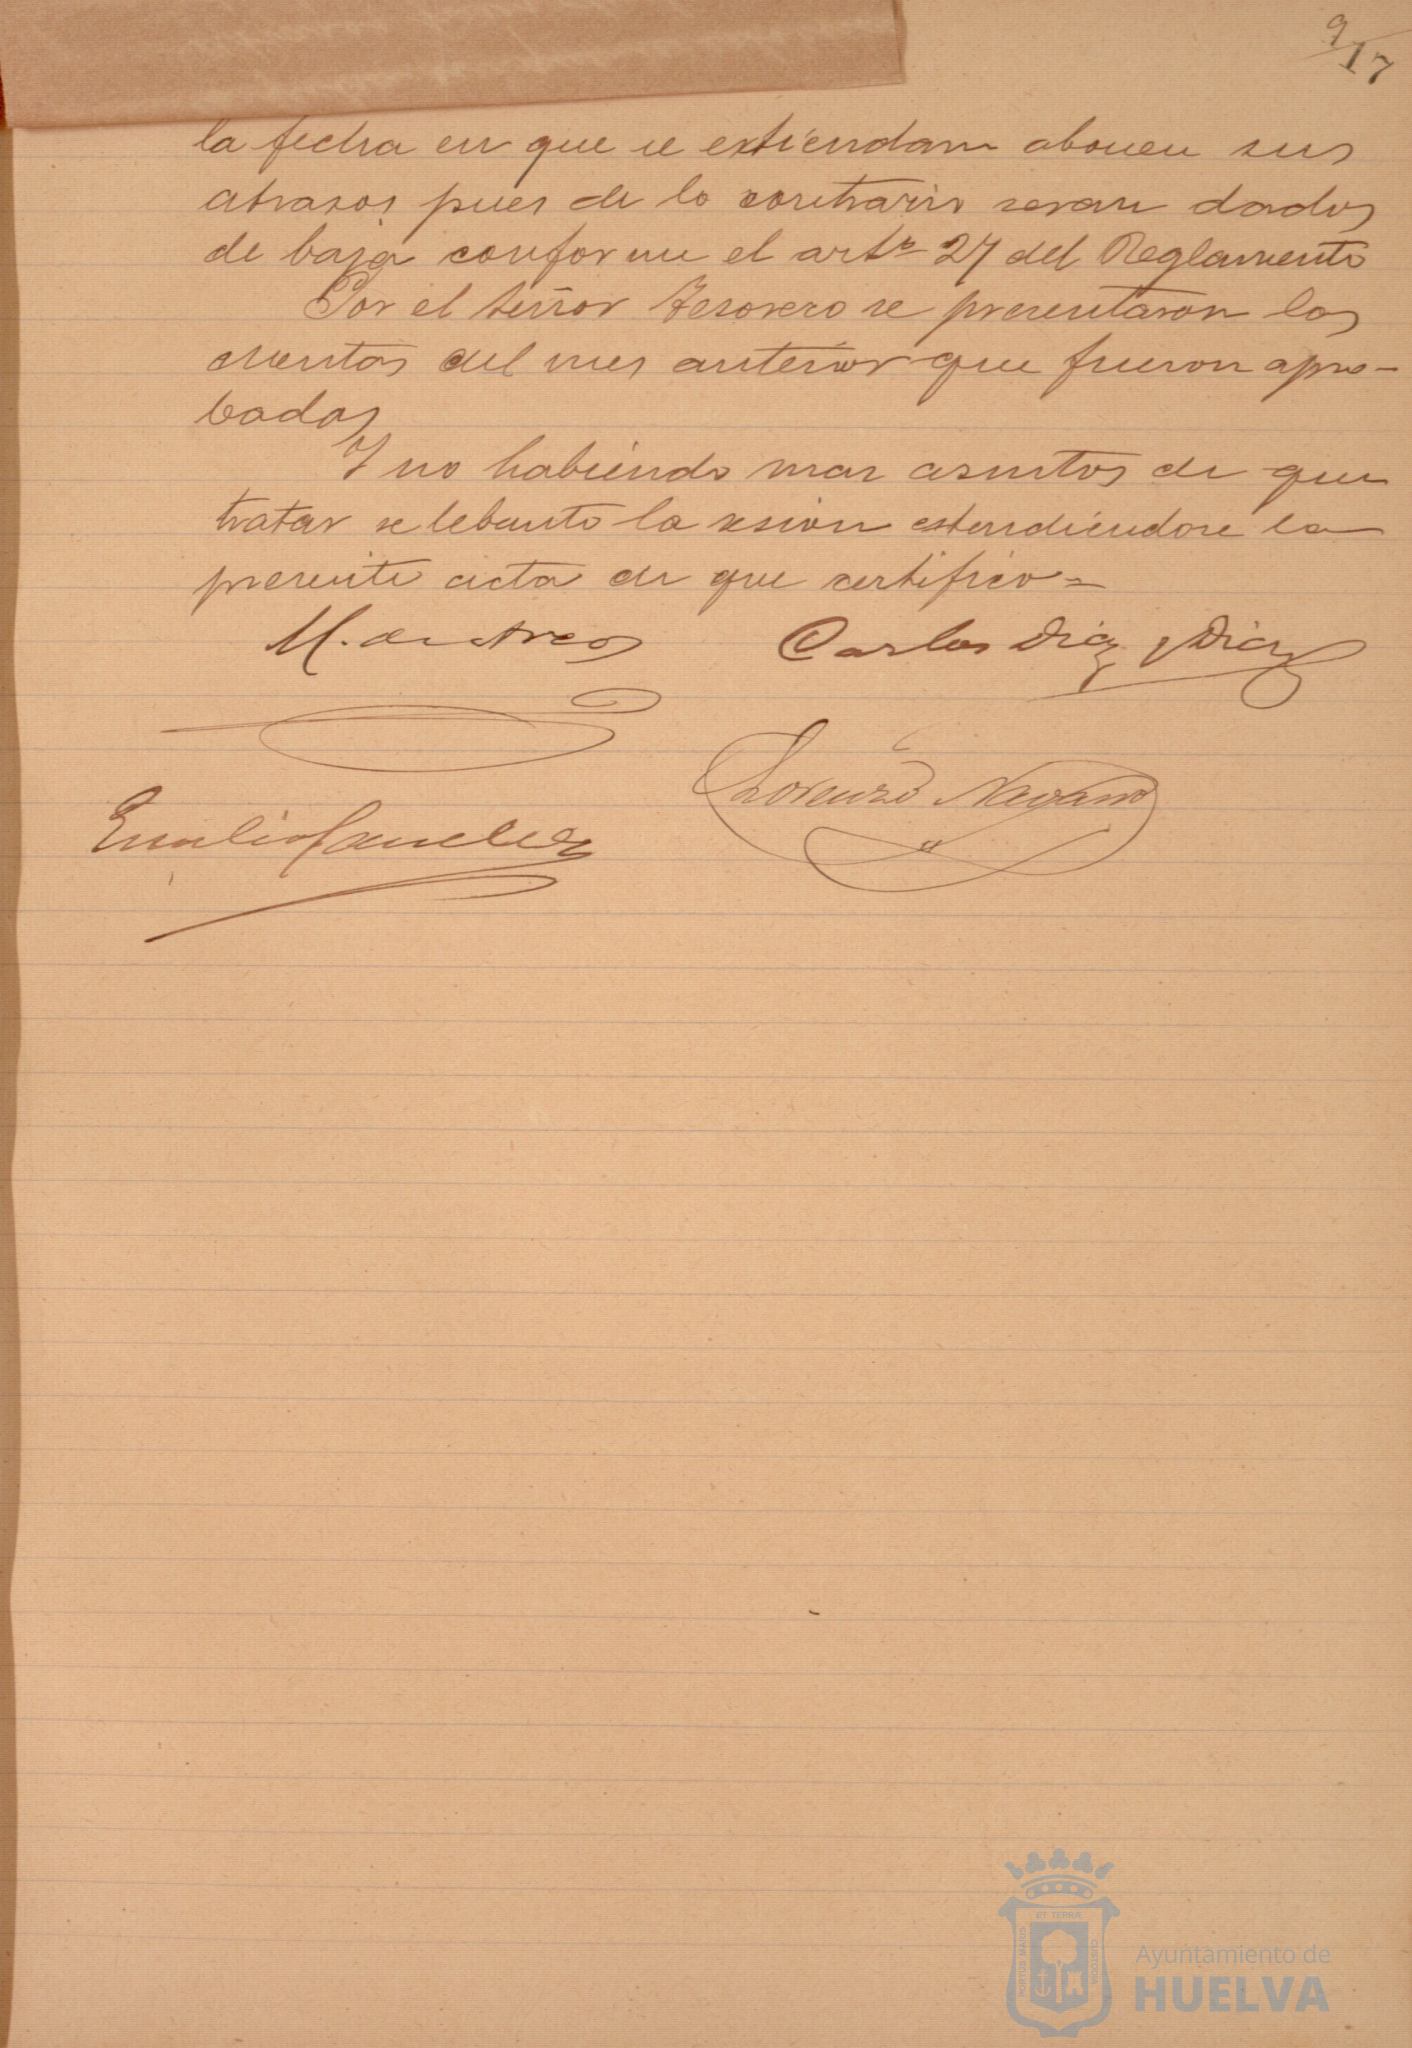 9
17
la fecha en que se extiendan abonen sus
atrasos pues de lo contrario seran dados
de baja conforme el artº 27 del Reglamento
Por el señor Tesorero se presentaron las
cuentas del mes anterior que fueron apro-
badas
Y no habiendo mas asuntos de que
tratar se lebanto la sesion estendiendose la
presente acta de que certifico=
M. de Arcos Carlos Diaz y Diaz
Lorenzo Navarro
Emilio Sanchez
ET TERRÆ
PORTUS MARIS
CUSTODIA
Ayuntamiento de
HUELVA